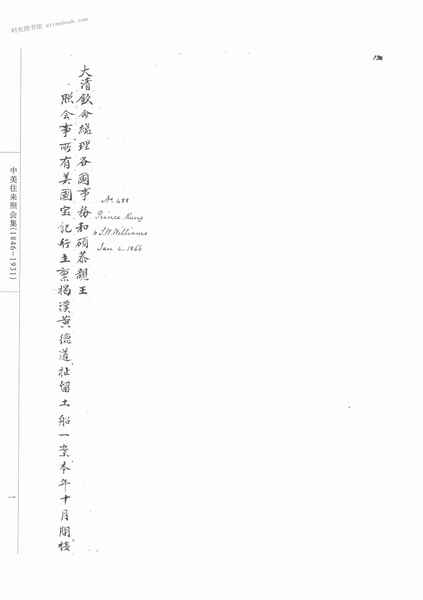 时光图书馆 airmobook.com
大清欽命總理各國事務和碩恭親王
照會事所有美國寶記行主稟揭漢黃德道扯留土船一案本年十月間接
No 488
Prince Kung
to S. W. Williams
Jan 2. 1866
中美往来照会集(1846-1931)
一